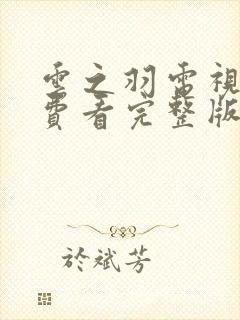 雲之羽電視
費看完整版
於斌芳